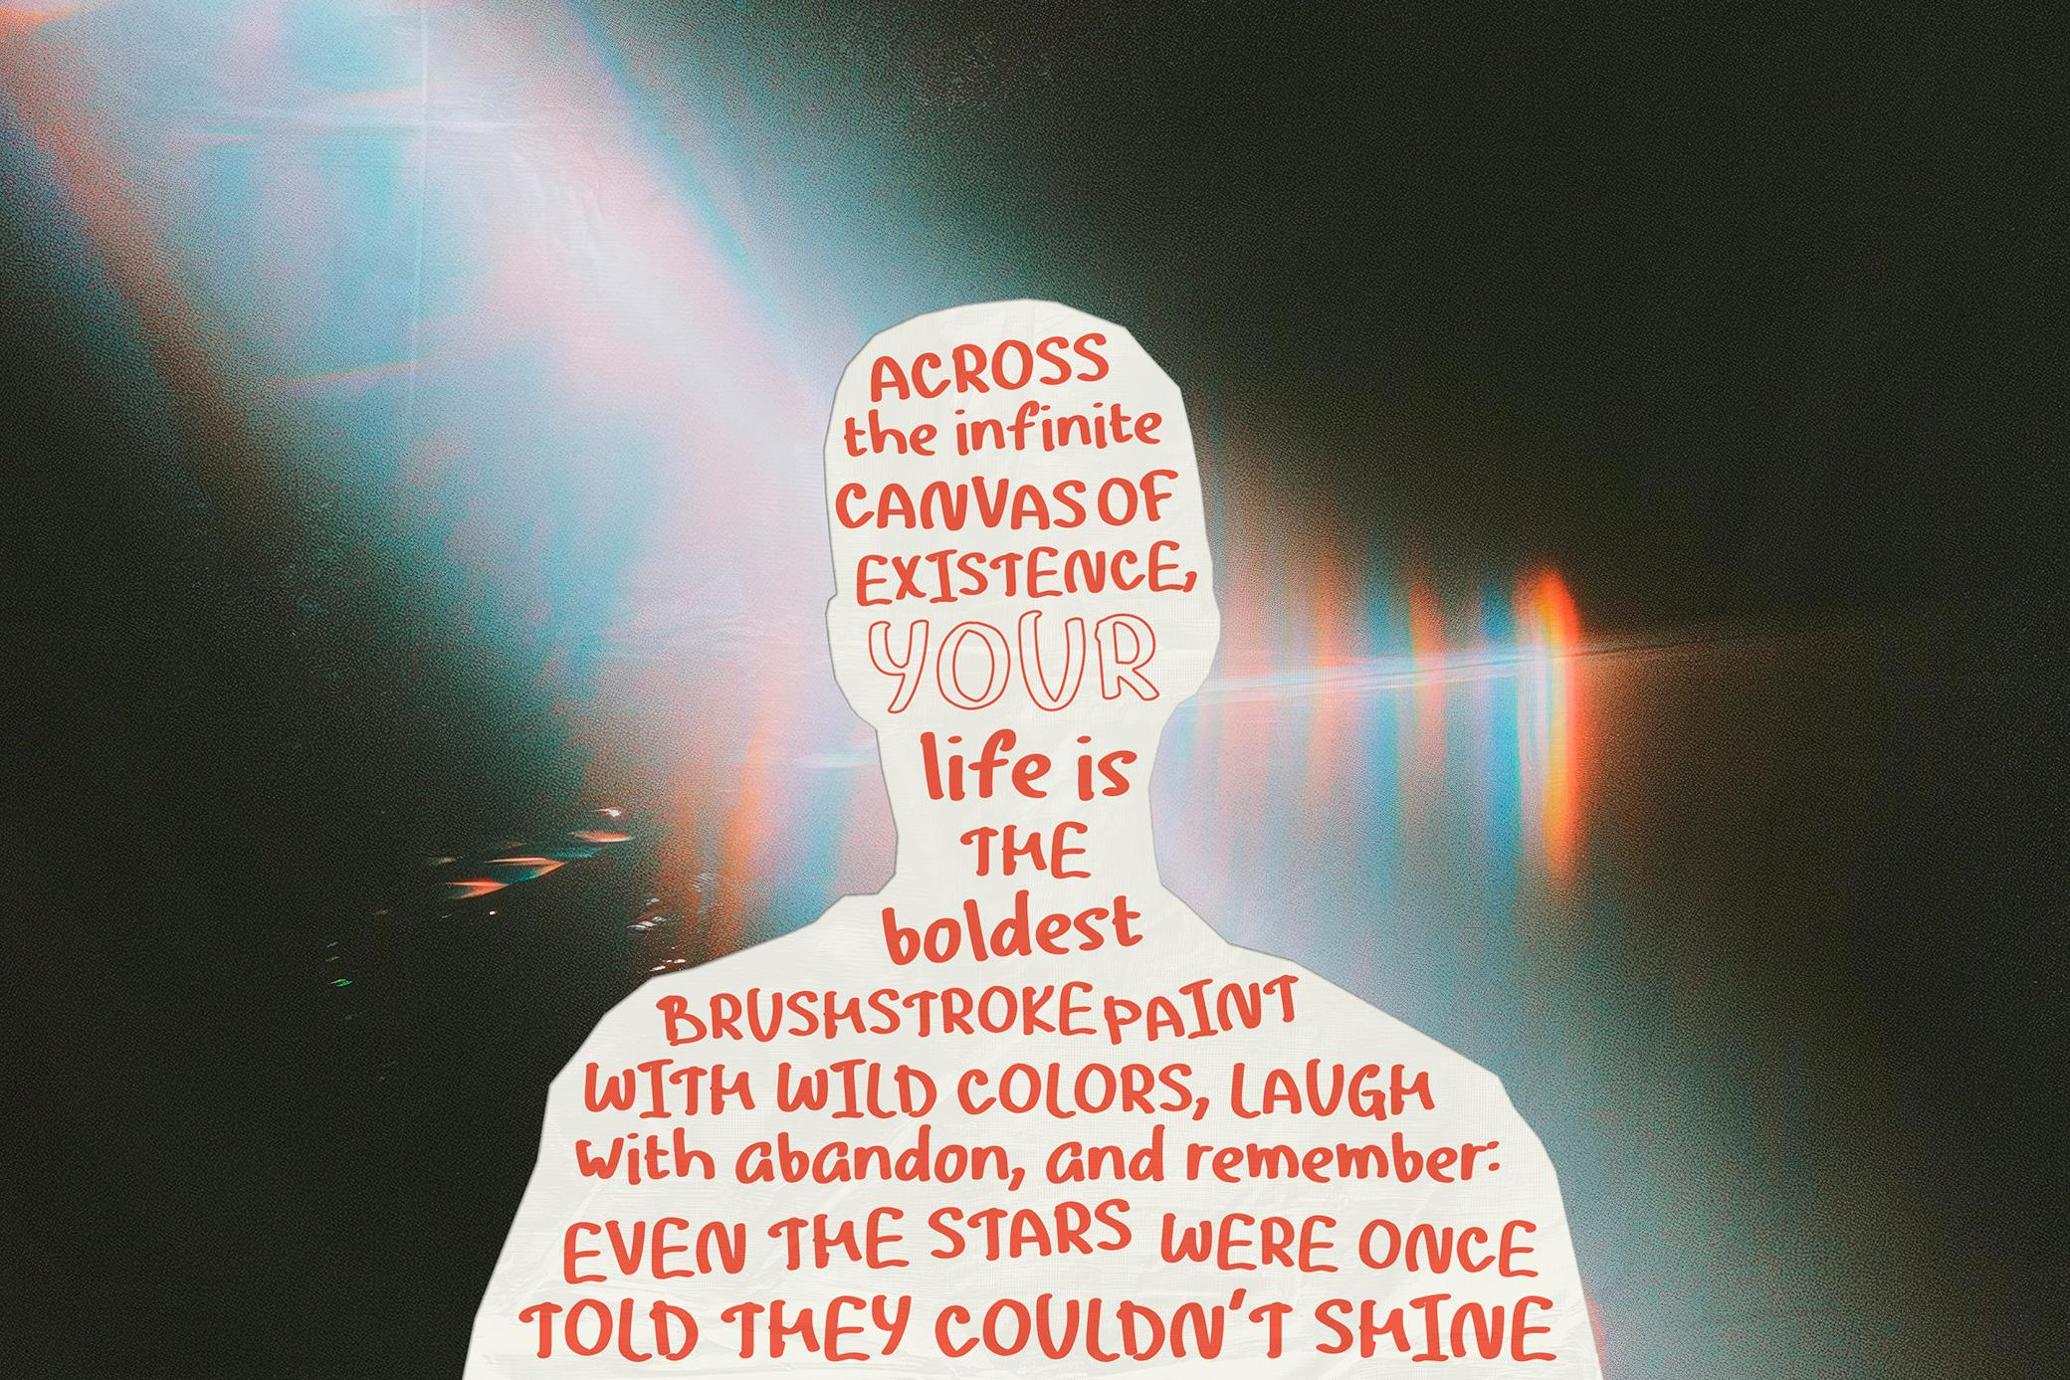 ACROSS
the infinite
CANVAS OF
EXISTENCE,
YOUR
life is
THE
boldest
BRUSHSTROKE PAINT
WITH WILD COLORS, LAUGH
with abandon, and remember:
EVEN THE STARS WERE ONCE
TOLD THEY COULDN'T SHINE